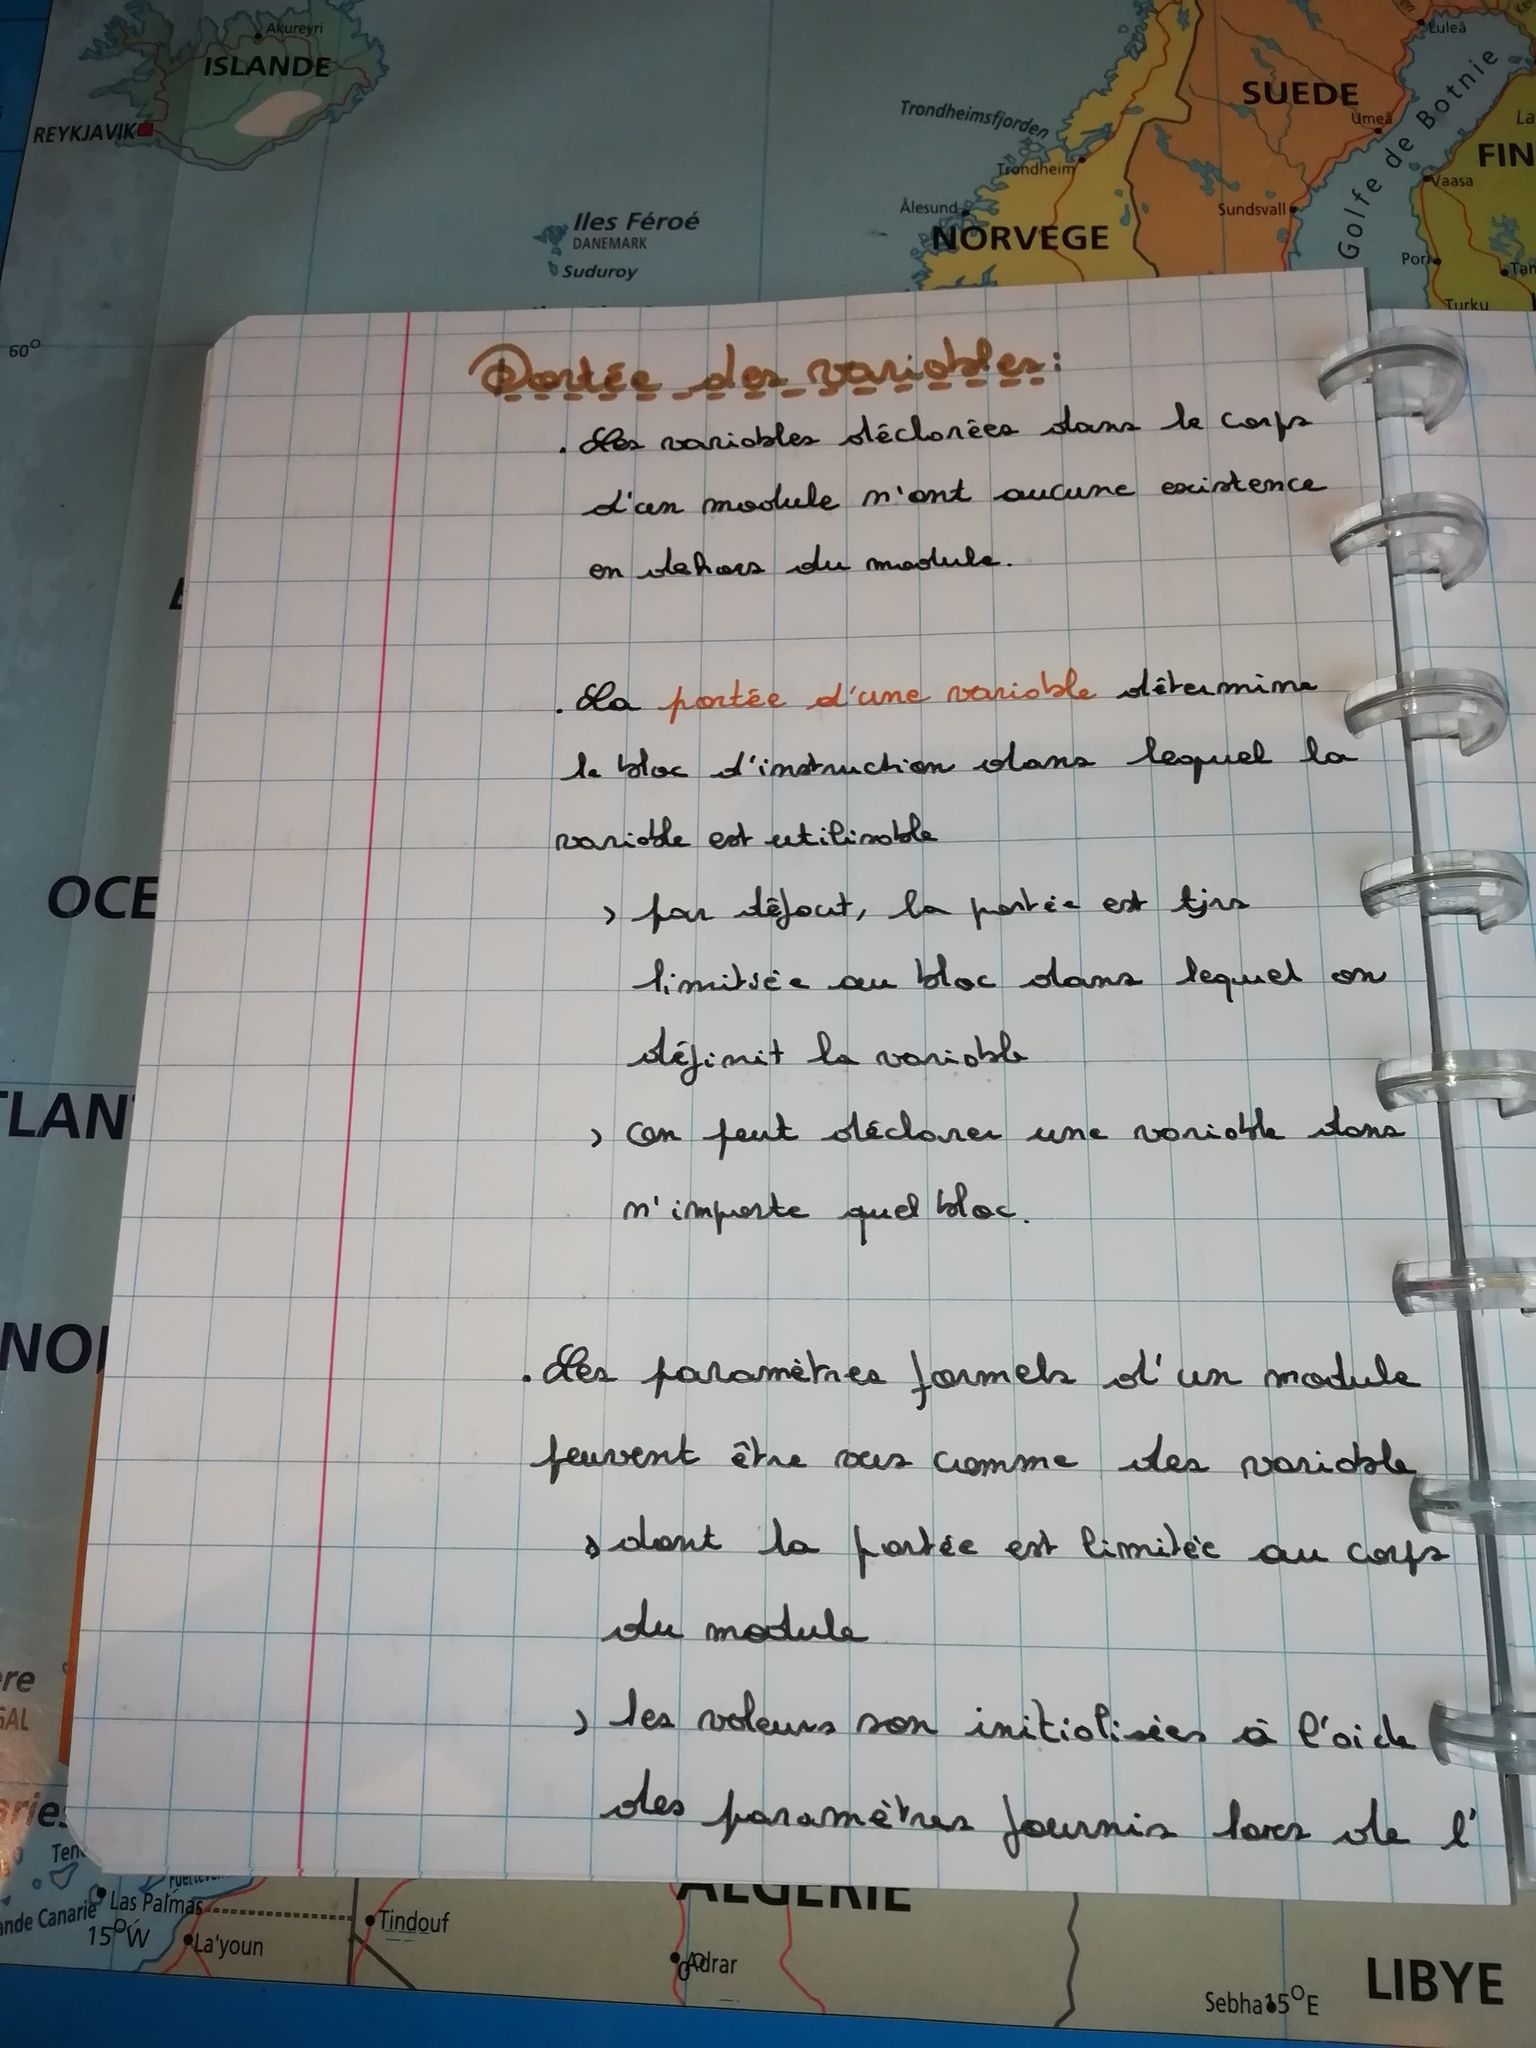 Akureyri
ISLANDE
REYKJAVIK
Trondheimsfjorden
Trondheim
SUEDE
Luleå
Umeå
Golfe de Botnie
FIN
Vaasa
Ålesund
NORVEGE
Sundsvall
Iles Féroé
DANEMARK
Suduroy
Pori
Turku
60°
Portée des variables :
. Les variables déclarées dans le corps
d'un module n'ont aucune existence
en dehors du module.
. La portée d'une variable détermine
le bloc d'instruction dans lequel la
variable est utilisable
> par défaut, la portée est tjrs
limitée au bloc dans lequel on
définit la variable
> on peut déclarer une variable dans
n'importe quel bloc.
. Les paramètres formels d'un module
peuvent être vus comme des variable
> dont la portée est limitée au corps
du module
> les valeurs son initialisées à l'aide
des paramètres fournis lors de l'
OCE
TLAN
NO
Las Palmas
15°W
La'youn
Tindouf
ALGERIE
Adrar
0°
Sebha
15°E
LIBYE